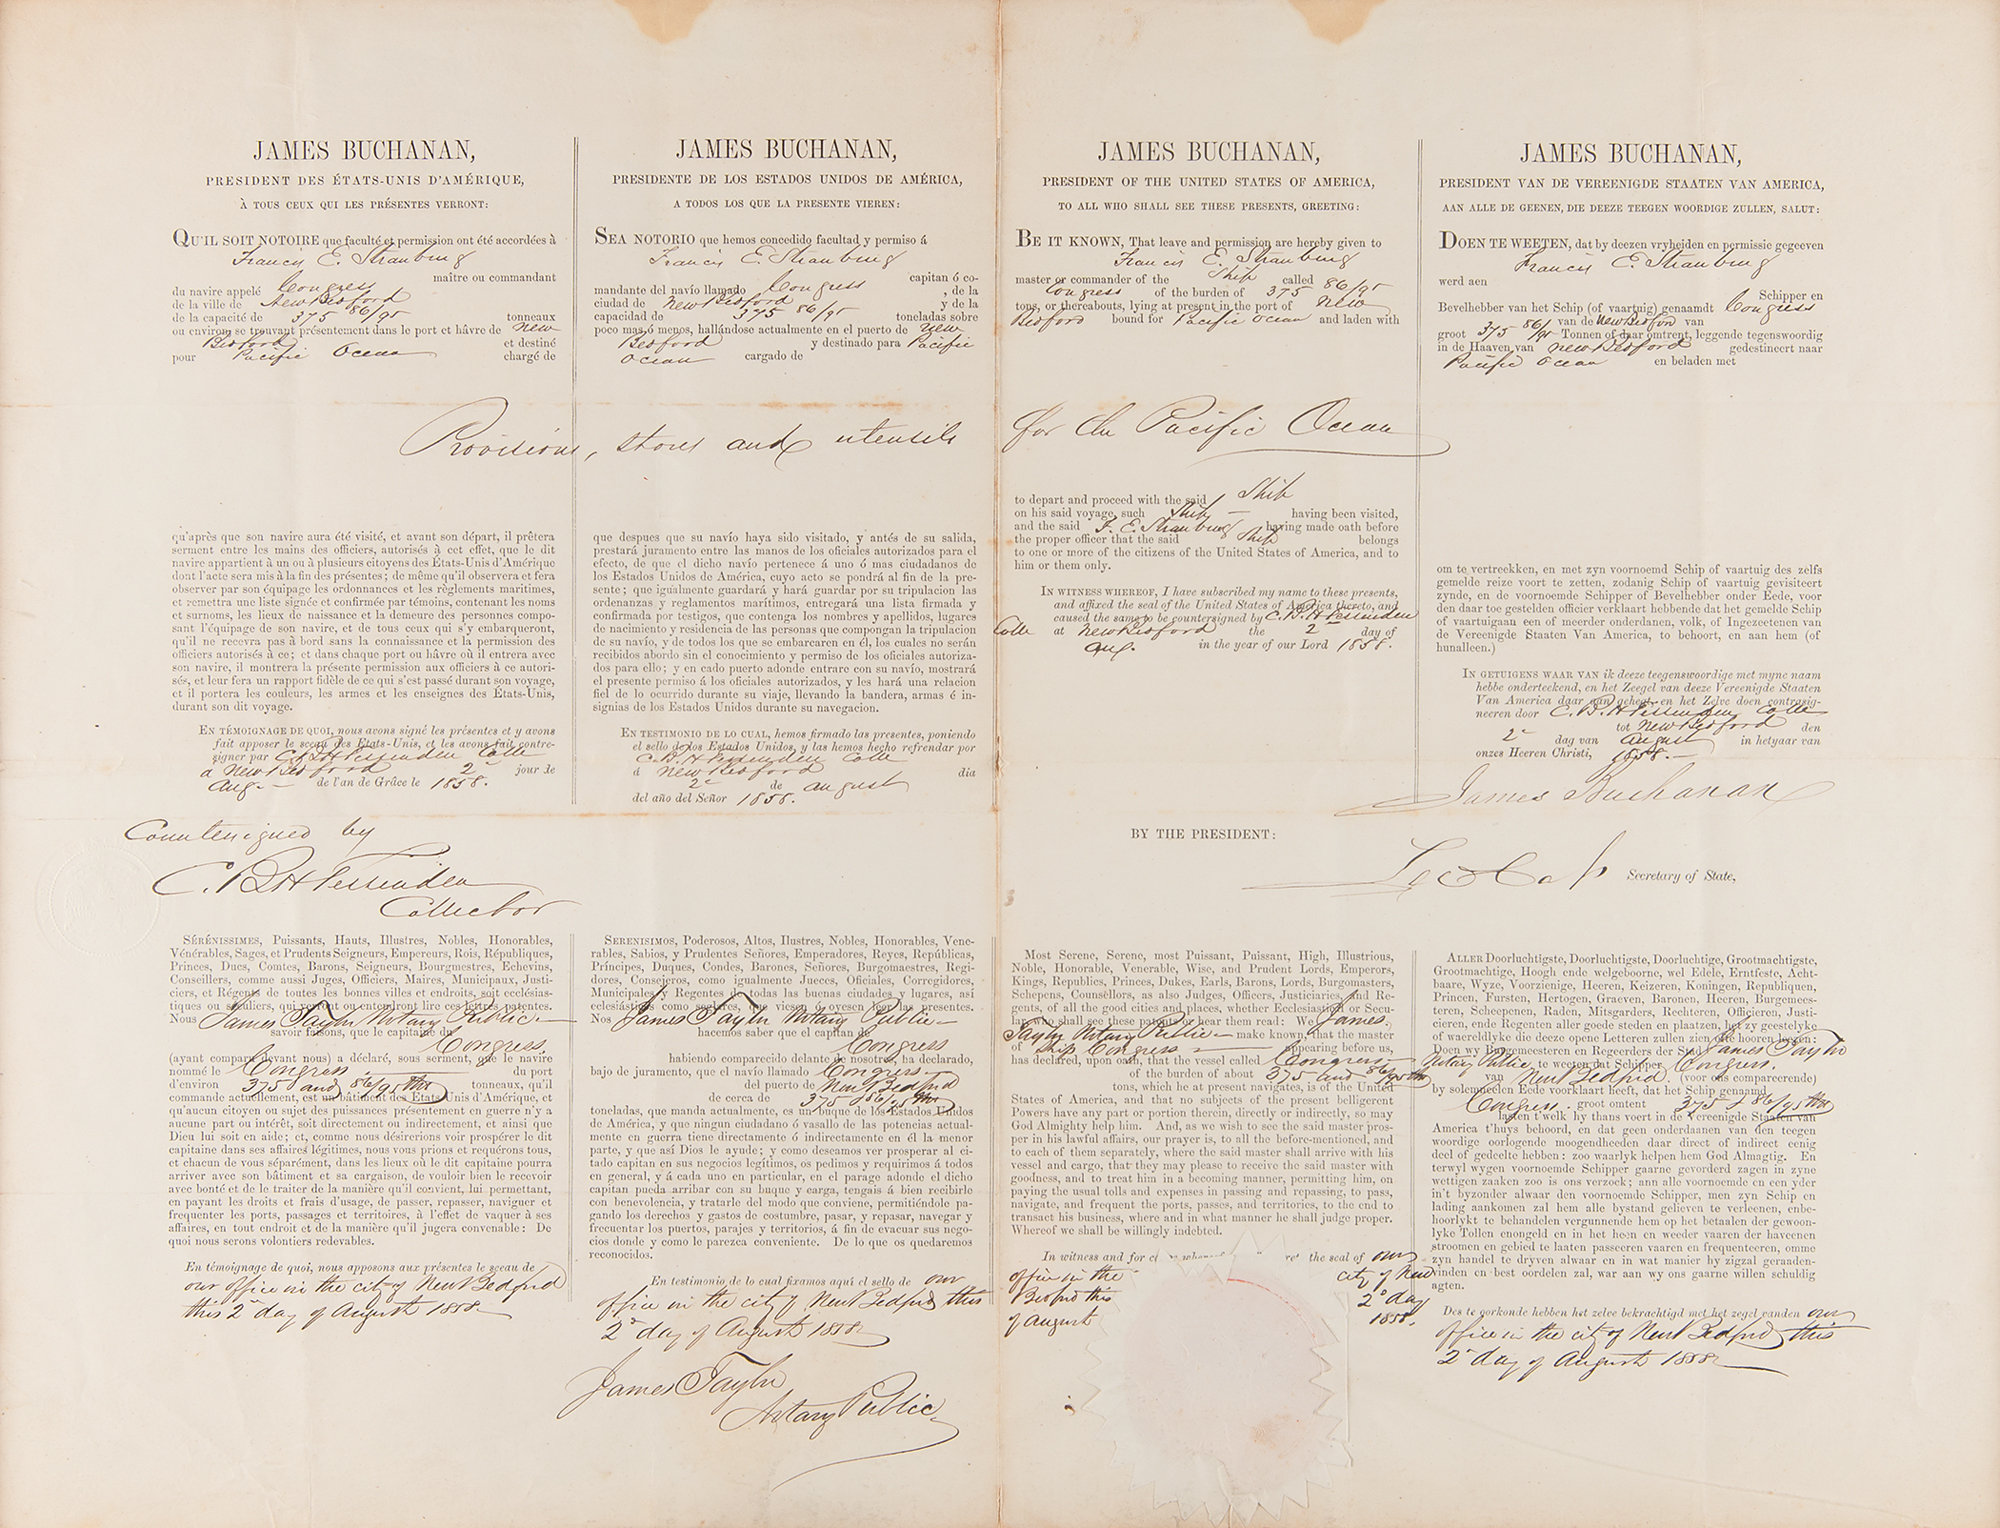 JAMES BUCHANAN,
PRESIDENT DES ÉTATS-UNIS D'AMÉRIQUE,
À TOUS CEUX QUI LES PRÉSENTES VERRONT:
QU'IL SOIT NOTOIRE que faculté et permission ont été accordées à
Francis E. Stranburg
maître ou commandant
du navire appelé Congress
de la ville de New Bedford
de la capacité de 375 86/95 tonneaux
ou environ se trouvant présentement dans le port et hâvre de New
Bedford et destiné
pour Pacific Ocean chargé de
JAMES BUCHANAN,
PRESIDENTE DE LOS ESTADOS UNIDOS DE AMÉRICA,
A TODOS LOS QUE LA PRESENTE VIEREN:
SEA NOTORIO que hemos concedido facultad y permiso á
Francis E. Stranburg
capitan ó co-
mandante del navío llamado Congress , de la
ciudad de New Bedford y de la
capacidad de 375 86/95 toneladas sobre
poco mas ó menos, hallándose actualmente en el puerto de New
Bedford y destinado para Pacific
Ocean cargado de
JAMES BUCHANAN,
PRESIDENT OF THE UNITED STATES OF AMERICA,
TO ALL WHO SHALL SEE THESE PRESENTS, GREETING:
BE IT KNOWN, That leave and permission are hereby given to
Francis E. Stranburg
master or commander of the Ship called
Congress of the burden of 375 86/95
tons, or thereabouts, lying at present in the port of New
Bedford bound for Pacific Ocean and laden with
JAMES BUCHANAN,
PRESIDENT VAN DE VEREENIGDE STAATEN VAN AMERICA,
AAN ALLE DE GEENEN, DIE DEEZE TEEGEN WOORDIGE ZULLEN, SALUT:
DOEN TE WEETEN, dat by deezen vryheiden en permissie gegeeven
Francis E. Stranburg
werd aen
Schipper en
Bevelhebber van het Schip (of vaartuig) genaamdt Congress
van de New Bedford van
groot 375 86/95 Tonnen of daar omtrent, leggende tegenswoordig
in de Haaven van New Bedford gedestineert naar
Pacific Ocean en beladen met
Provisions, stores and utensils for the Pacific Ocean
qu'après que son navire aura été visité, et avant son départ, il prêtera
serment entre les mains des officiers, autorisés à cet effet, que le dit
navire appartient à un ou à plusieurs citoyens des États-Unis d'Amérique
dont l'acte sera mis à la fin des présentes; de même qu'il observera et fera
observer par son équipage les ordonnances et les règlements maritimes,
et remettra une liste signée et confirmée par témoins, contenant les noms
et surnoms, les lieux de naissance et la demeure des personnes compo-
sant l'équipage de son navire, et de tous ceux qui s'y embarqueront,
qu'il ne recevra pas à bord sans la connaissance et la permission des
officiers autorisés à ce; et dans chaque port ou hâvre où il entrera avec
son navire, il montrera la présente permission aux officiers à ce autori-
sés, et leur fera un rapport fidèle de ce qui s'est passé durant son voyage,
et il portera les couleurs, les armes et les enseignes des États-Unis,
durant son dit voyage.
EN TÉMOIGNAGE DE QUOI, nous avons signé les présentes et y avons
fait apposer le sceau des États-Unis, et les avons fait contre-
signer par C. B. H. Fessenden Colle
à New Bedford 2d jour de
Aug. de l'an de Grâce le 1858.
que despues que su navío haya sido visitado, y antés de su salida,
prestará juramento entre las manos de los oficiales autorizados para el
efecto, de que el dicho navío pertenece á uno ó mas ciudadanos de
los Estados Unidos de América, cuyo acto se pondrá al fin de la pre-
sente; que igualmente guardará y hará guardar por su tripulacion las
ordenanzas y reglamentos marítimos, entregará una lista firmada y
confirmada por testigos, que contenga los nombres y apellidos, lugares
de nacimiento y residencia de las personas que compongan la tripulacion
de su navío, y de todos los que se embarcaren en él, los cuales no serán
recibidos abordo sin el conocimiento y permiso de los oficiales autoriza-
dos para ello; y en cado puerto adonde entrare con su navío, mostrará
el presente permiso á los oficiales autorizados, y les hará una relacion
fiel de lo ocurrido durante su viaje, llevando la bandera, armas é in-
signias de los Estados Unidos durante su navegacion.
EN TESTIMONIO DE LO CUAL, hemos firmado las presentes, poniendo
el sello de los Estados Unidos, y las hemos hecho refrendar por
C. B. H. Fessenden Colle
á New Bedford dia
2d de august
del año del Señor 1858.
to depart and proceed with the said Ship
on his said voyage, such Ship having been visited,
and the said F. E. Stranburg having made oath before
the proper officer that the said Ship belongs
to one or more of the citizens of the United States of America, and to
him or them only.
IN WITNESS WHEREOF, I have subscribed my name to these presents,
and affixed the seal of the United States of America thereto, and
caused the same to be countersigned by C. B. H. Fessenden
Colle at New Bedford the 2d day of
Aug. in the year of our Lord 1858.
om te vertreekken, en met zyn voornoemd Schip of vaartuig des zelfs
gemelde reize voort te zetten, zodanig Schip of vaartuig gevisiteert
zynde, en de voornoemde Schipper of Bevelhebber onder Eede, voor
den daar toe gestelden officier verklaart hebbende dat het gemelde Schip
of vaartuigaan een of meerder onderdanen, volk, of Ingezeetenen van
de Vereenigde Staaten Van America, to behoort, en aan hem (of
hunalleen.)
IN GETUIGENS WAAR VAN ik deeze teegenswoordige met myne naam
hebbe onderteekend, en het Zeegel van deeze Vereenigde Staaten
Van America daar aan gehegt, en het Zelve doen contrasig-
neeren door C. B. H. Fessenden, Colle
tot New Bedford den
2d dag van August in hetyaar van
onzes Heeren Christi, 1858.
James Buchanan
Countersigned by
C. B. H. Fessenden
Collector
BY THE PRESIDENT:
Lewis Cass Secretary of State,
SÉRÉNISSIMES, Puissants, Hauts, Illustres, Nobles, Honorables,
Vénérables, Sages, et Prudents Seigneurs, Empereurs, Rois, Républiques,
Princes, Ducs, Comtes, Barons, Seigneurs, Bourgmestres, Echevins,
Conseillers, comme aussi Juges, Officiers, Maires, Municipaux, Justi-
ciers, et Régents de toutes les bonnes villes et endroits, soit ecclésias-
tiques ou séculiers, qui verront ou entendront lire ces lettres patentes.
Nous James Taylor Notary Public
savoir faisons, que le capitaine du
Congress
(ayant comparu devant nous) a déclaré, sous serment, que le navire
nommé le Congress du port
d'environ 375 and 86/95ths tonneaux, qu'il
commande actuellement, est un bâtiment des États Unis d'Amérique, et
qu'aucun citoyen ou sujet des puissances présentement en guerre n'y a
aucune part ou intérêt, soit directement ou indirectement, et ainsi que
Dieu lui soit en aide; et, comme nous désirerions voir prospérer le dit
capitaine dans ses affaires légitimes, nous vous prions et requérons tous,
et chacun de vous séparément, dans les lieux où le dit capitaine pourra
arriver avec son bâtiment et sa cargaison, de vouloir bien le recevoir
avec bonté et de le traiter de la manière qu'il convient, lui permettant,
en payant les droits et frais d'usage, de passer, repasser, naviguer et
frequenter les ports, passages et territoires, à l'effet de vaquer à ses
affaires, en tout endroit et de la manière qu'il jugera convenable: De
quoi nous serons volontiers redevables.
En témoignage de quoi, nous apposons aux présentes le sceau de
our office in the city of New Bedford
this 2d day of August 1858
SERENISIMOS, Poderosos, Altos, Ilustres, Nobles, Honorables, Vene-
rables, Sabios, y Prudentes Señores, Emperadores, Reyes, Repúblicas,
Príncipes, Duques, Condes, Barones, Señores, Burgomaestres, Regi-
dores, Consejeros, como igualmente Jueces, Oficiales, Corregidores,
Municipales y Regentes de todas las buenas ciudades y lugares, así
eclesiásticos como seglares, que viesen ó oyesen leer las presentes.
Nos James Taylor Notary Public
hacemos saber que el capitan de
Congress
habiendo comparecido delante de nosotros, ha declarado,
bajo de juramento, que el navío llamado Congress
del puerto de New Bedford
de cerca de 375 & 86/95ths
toneladas, que manda actualmente, es un buque de los Estados Unidos
de América, y que ningun ciudadano ó vasallo de las potencias actual-
mente en guerra tiene directamente ó indirectamente en él la menor
parte, y que así Dios le ayude; y como deseamos ver prosperar al ci-
tado capitan en sus negocios legítimos, os pedimos y requirimos á todos
en general, y á cada uno en particular, en el parage adonde el dicho
capitan pueda arribar con su buque y carga, tengais á bien recibirle
con benevolencia, y tratarle del modo que conviene, permitiéndole pa-
gando los derechos y gastos de costumbre, pasar, y repasar, navegar y
frecuentar los puertos, parajes y territorios, á fin de evacuar sus nego-
cios donde y como le parezca conveniente. De lo que os quedaremos
reconocidos.
En testimonio de lo cual fixamos aquí el sello de our
office in the city of New Bedford this
2d day of August 1858
James Taylor
Notary Public
Most Serene, Serene, most Puissant, Puissant, High, Illustrious,
Noble, Honorable, Venerable, Wise, and Prudent Lords, Emperors,
Kings, Republics, Princes, Dukes, Earls, Barons, Lords, Burgomasters,
Schepens, Counsellors, as also Judges, Officers, Justiciaries, and Re-
gents, of all the good cities and places, whether Ecclesiastical or Secu-
lar, who shall see these patents or hear them read: We James
Taylor Notary Public make known, that the master
of ship Congress appearing before us,
has declared, upon oath, that the vessel called Congress
of the burden of about 375 and 86/95ths
tons, which he at present navigates, is of the United
States of America, and that no subjects of the present belligerent
Powers have any part or portion therein, directly or indirectly, so may
God Almighty help him. And, as we wish to see the said master pros-
per in his lawful affairs, our prayer is, to all the before-mentioned, and
to each of them separately, where the said master shall arrive with his
vessel and cargo, that they may please to receive the said master with
goodness, and to treat him in a becoming manner, permitting him, on
paying the usual tolls and expenses in passing and repassing, to pass,
navigate, and frequent the ports, passes, and territories, to the end to
transact his business, where and in what manner he shall judge proper.
Whereof we shall be willingly indebted.
In witness and for the seal of our
office in the city of New
Bedford this 2d day
of August 1858.
ALLER Doorluchtigste, Doorluchtigste, Doorluchtige, Grootmachtigste,
Grootmachtige, Hoogh ende welgeboorne, wel Edele, Erntfeste, Acht-
baare, Wyze, Voorzienige, Heeren, Keizeren, Koningen, Republiquen,
Princen, Fursten, Hertogen, Graeven, Baronen, Heeren, Burgemees-
teren, Scheepenen, Raden, Mitsgarders, Rechteren, Officieren, Justi-
cieren, ende Regenten aller goede steden en plaatzen, het zy geestelyke
of waereldlyke die deeze opene Letteren zullen zien ofte hooren leezen:
Doen wy Burgemeesteren en Regeerders der Stad James Taylor
Notary Public te weeten dat Schipper Congress.
van New Bedford. (voor ons compareerende)
by solempeelen Eede voorklaart heeft, dat het Schip genaamd
Congress. groot omtent 375 & 86/95ths
lasten t'welk hy thans voert in de Vereenigde Staaten van
America t'huys behoord, en dat geen onderdaanen van den teegen
woordige oorlogende moogendheeden daar direct of indirect eenig
deel of gedeelte hebben: zoo waarlyk helpen hem God Almagtig. En
terwyl wygen voornoemde Schipper gaarne gevorderd zagen in zyne
wettigen zaaken zoo is ons verzoek; ann alle voornoemde en een yder
in't byzonder alwaar den voornoemde Schipper, men zyn Schip en
lading aankomen zal hem alle bystand gelieven te verleenen, enbe-
hoorlykt te behandelen vergunnende hem op het betaalen der gewoon-
lyke Tollen enongeld en in het heen en weeder vaaren der haveenen
stroomen en gebied te laaten passeeren vaaren en frequenteeren, omme
zyn handel te dryven alwaar en in wat manier by zigzal geraaden-
vinden en best oordelen zal, war aan wy ons gaarne willen schuldig
agten.
Des te oorkonde hebben het zelve bekrachtigd met het zegel vanden our
office in the city of New Bedford this
2d day of August 1858